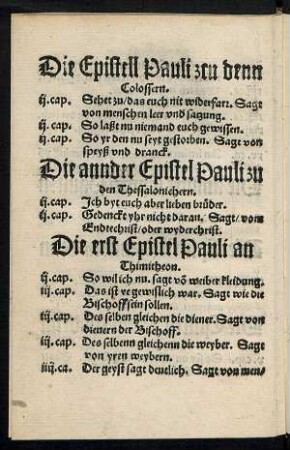 Die Epistell Pauli zcu denn
Colossern.
ij.cap. Sehet zu/das euch nit widerfar. Sagt
von menschen leer vnd satzung.
ij.cap. So laßt nu niemand euch gewissen.
ij.cap. So yr den nu seyt gestorben. Sagt von
speyß vnd dranck.
Die annder Epistel Pauli zu
den Thessalonichern.
ij.cap. Ich byt euch aber lieben brüder.
ij.cap. Gedenckt yhr nicht daran. Sagt/vom
Endtechrist/oder wyderchrist.
Die erst Epistel Pauli an
Thimitheon.
ij.cap. So wil ich nu. sagt võ weiber kleidung.
iij.cap. Das ist ye gewißlich war. Sagt wie die
Bischoff sein sollen.
iij.cap. Des selben gleichen die diener. Sagt von
dienern der Bischoff.
iij.cap. Des selbenn gleichenn die weyber. Sagt
von yren weybern.
iiij.ca. Der geyst sagt deutlich. Sagt von men/